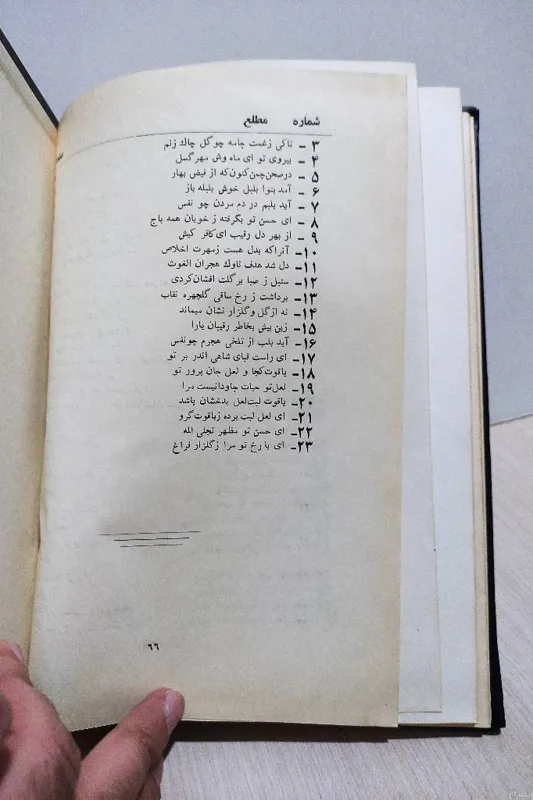 شماره مطلع
۳ - تاکی زغمت جامه چوگل چاك زنم
۴ - بیروی تو ای ماه وش مهرگسل
۵ - درصحن‌چمن‌کنون‌که از فیض بهار
۶ - آمد بنوا بلبل خوش بلبله باز
۷ - آید بلبم در دم مردن چو نفس
۸ - ای حسن تو بگرفته ز خوبان همه باج
۹ - از بهر دل رقیب ای‌کافر کیش
۱۰ - آنراکه بدل هست زمهرت اخلاص
۱۱ - دل شد هدف ناوك هجران الغوث
۱۲ - سنبل ز صبا برگلت افشان‌کردی
۱۳ - برداشت ز رخ ساقی گلچهره نقاب
۱۴ - نه ازگل وگلزار نشان میماند
۱۵ - زین بیش بخاطر رقیبان یارا
۱۶ - آید بلب از تلخی هجرم چونفس
۱۷ - ای راست قبای شاهی اندر بر تو
۱۸ - یاقوت‌کجا و لعل جان پرور تو
۱۹ - لعل‌تو حیات جاودانیست مرا
۲۰ - یاقوت لبت‌لعل بدخشان باشد
۲۱ - ای لعل لبت برده زیاقوت‌گرو
۲۲ - ای حسن تو مظهر تجلی اله
۲۳ - ای با رخ تو مرا زگلزار فراغ
۶۶